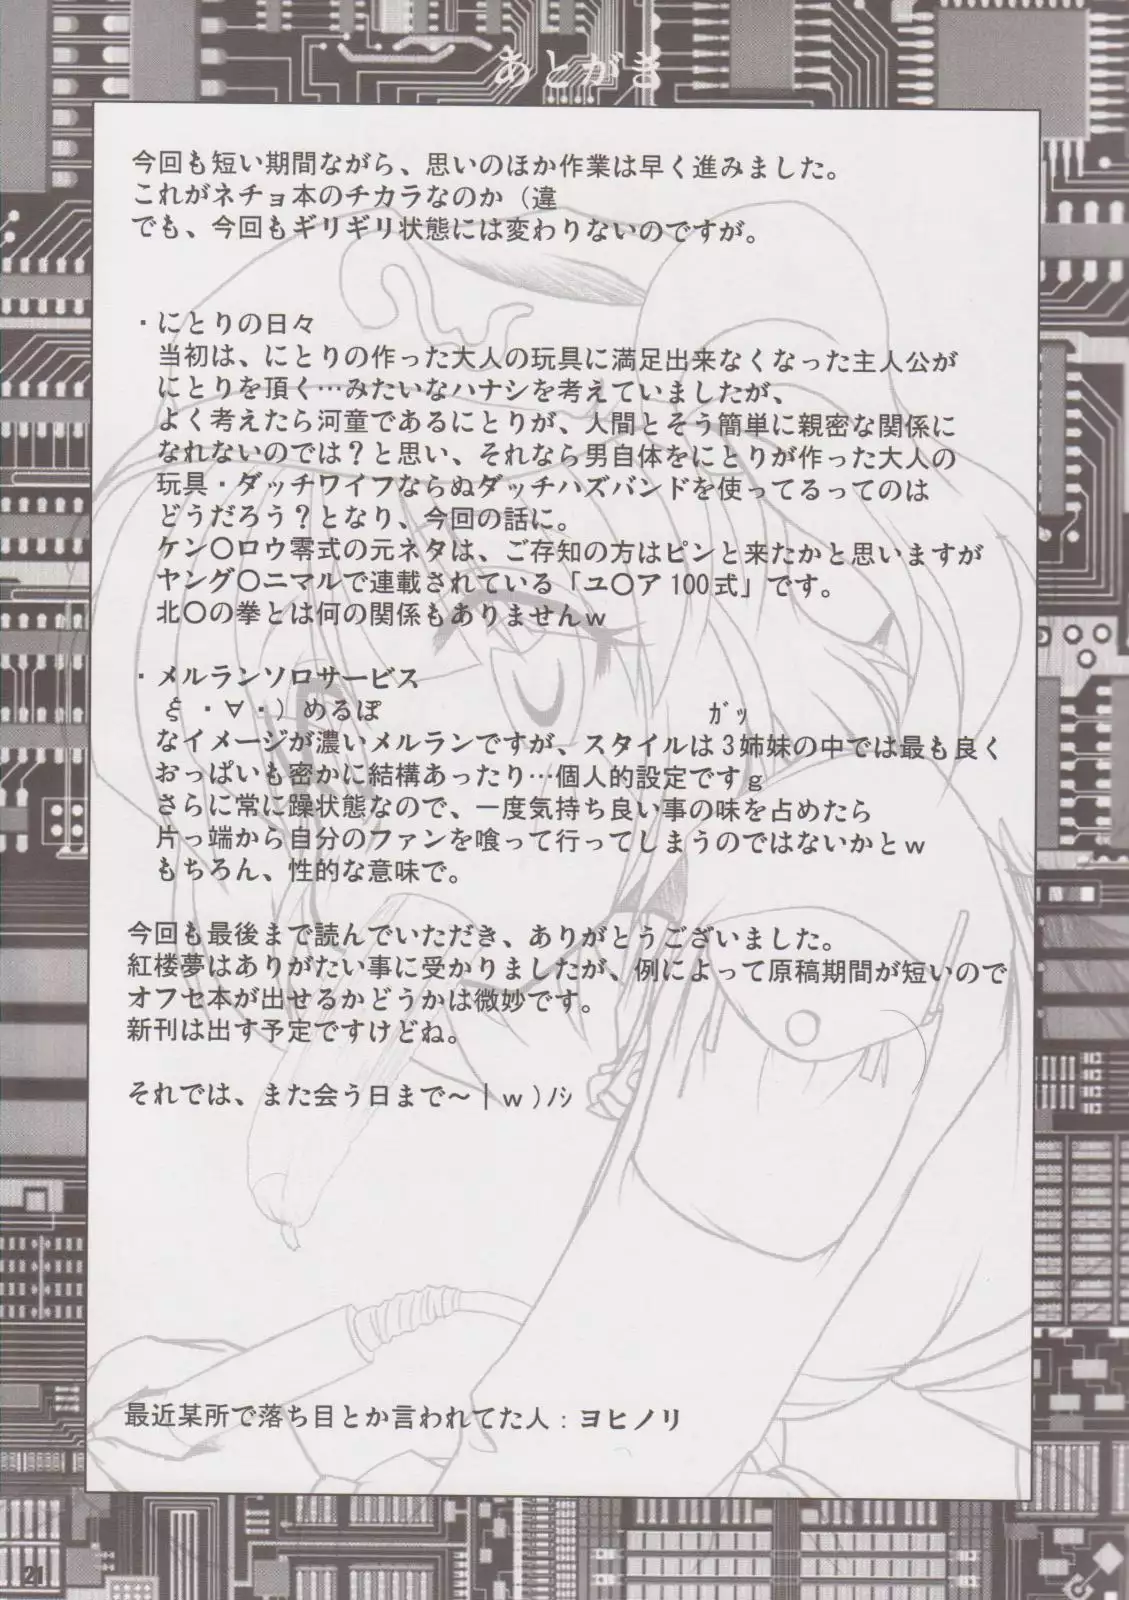 あとがき
今回も短い期間ながら、思いのほか作業は早く進みました。
これがネチョ本のチカラなのか（違
でも、今回もギリギリ状態には変わりないのですが。
・にとりの日々
当初は、にとりの作った大人の玩具に満足出来なくなった主人公が
にとりを頂く…みたいなハナシを考えていましたが、
よく考えたら河童であるにとりが、人間とそう簡単に親密な関係に
なれないのでは？と思い、それなら男自体をにとりが作った大人の
玩具・ダッチワイフならぬダッチハズバンドを使ってるってのは
どうだろう？となり、今回の話に。
ケン〇ロウ零式の元ネタは、ご存知の方はピンと来たかと思いますが
ヤング〇ニマルで連載されている「ユ〇ア100式」です。
北〇の拳とは何の関係もありませんｗ
・メルランソロサービス
ξ ・∀・）めるぽ　　　　　ｶﾞｯ
なイメージが濃いメルランですが、スタイルは３姉妹の中では最も良く
おっぱいも密かに結構あったり…個人的設定ですｇ
さらに常に躁状態なので、一度気持ち良い事の味を占めたら
片っ端から自分のファンを喰って行ってしまうのではないかとｗ
もちろん、性的な意味で。
今回も最後まで読んでいただき、ありがとうございました。
紅楼夢はありがたい事に受かりましたが、例によって原稿期間が短いので
オフセ本が出せるかどうかは微妙です。
新刊は出す予定ですけどね。
それでは、また会う日まで～｜ｗ）ﾉｼ
最近某所で落ち目とか言われてた人：ヨヒノリ
21